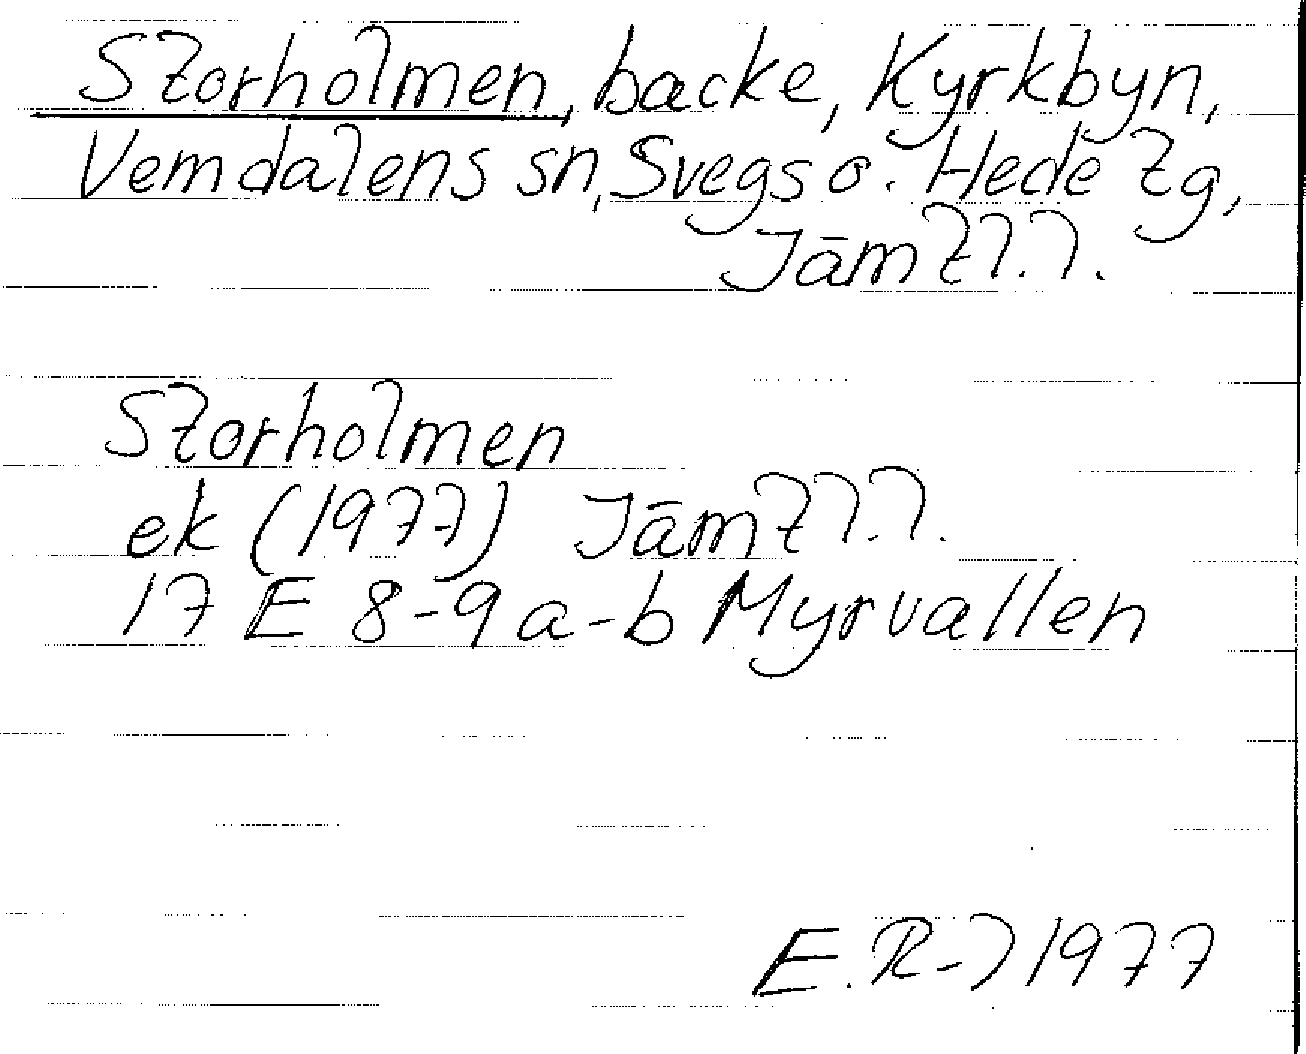 Storholmen, backe, Kyrkbyn,
Vemdalens sn, Svegs o. Hede tg,
Jämtl.l.
Storholmen
ek (1977) Jämtl.l.
17 E 8-9 a-b Myrvallen
E. R-l 1977